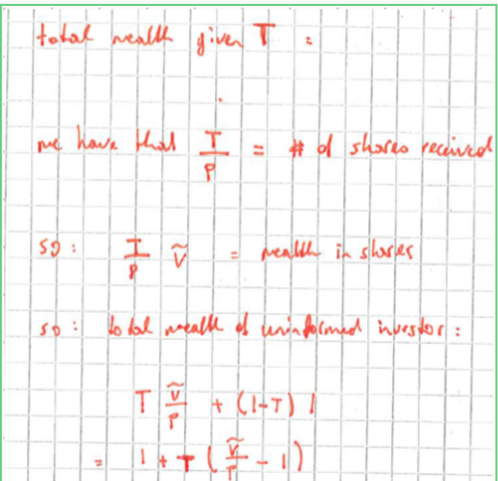 total wealth given T =
we have that T/P = # of shares received
so: T/P ṽ = wealth in shares
so: total wealth of uninformed investor:
T ṽ/P + (1-T) 1
= 1 + T (ṽ/P - 1)